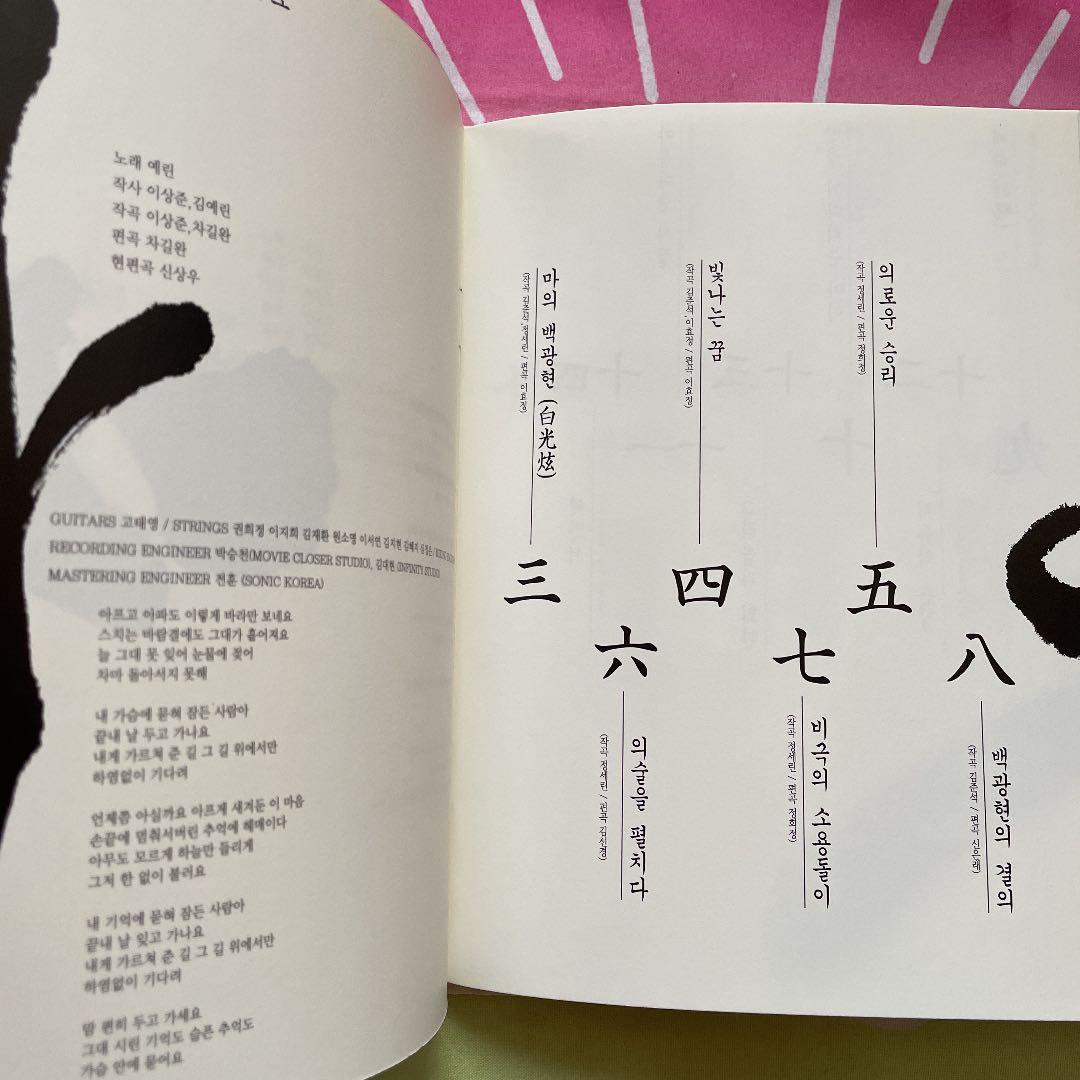 노래 예린
작사 이상준,김예린
작곡 이상준,차길완
편곡 차길완
현편곡 신상우
GUITARS 고태영 / STRINGS 권희정 이지희 김재환 원소영 이서연 김지현 김혜지 심정은/
RECORDING ENGINEER 박승천(MOVIE CLOSER STUDIO), 김대현 (INFINITY STUDIO)
MASTERING ENGINEER 전훈 (SONIC KOREA)
아프고 아파도 이렇게 바라만 보네요
스치는 바람결에도 그대가 흩어져요
늘 그대 못 잊어 눈물에 젖어
차마 돌아서지 못해
내 가슴에 묻혀 잠든 사람아
끝내 날 두고 가나요
내게 가르쳐 준 길 그 길 위에서만
하염없이 기다려
언제쯤 아실까요 아프게 새겨둔 이 마음
손끝에 멈춰서버린 추억에 헤매이다
아무도 모르게 하늘만 들리게
그저 한 없이 불러요
내 기억에 묻혀 잠든 사람아
끝내 날 잊고 가나요
내게 가르쳐 준 길 그 길 위에서만
하염없이 기다려
맘 편히 두고 가세요
그대 시린 기억도 슬픈 추억도
가슴 안에 묻어요
三
마의 백광현 (白光炫)
(작곡 김준석,정세린 / 편곡 이효정)
四
빛나는 꿈
(작곡 김준석,이효정 / 편곡 이효정)
五
의로운 승리
(작곡 정세린 / 편곡 정희정)
六
의술을 펼치다
(작곡 정세린 / 편곡 김선경)
七
비극의 소용돌이
(작곡 정세린 / 편곡 정희정)
八
백광현의 결의
(작곡 김준석 / 편곡 신은래)